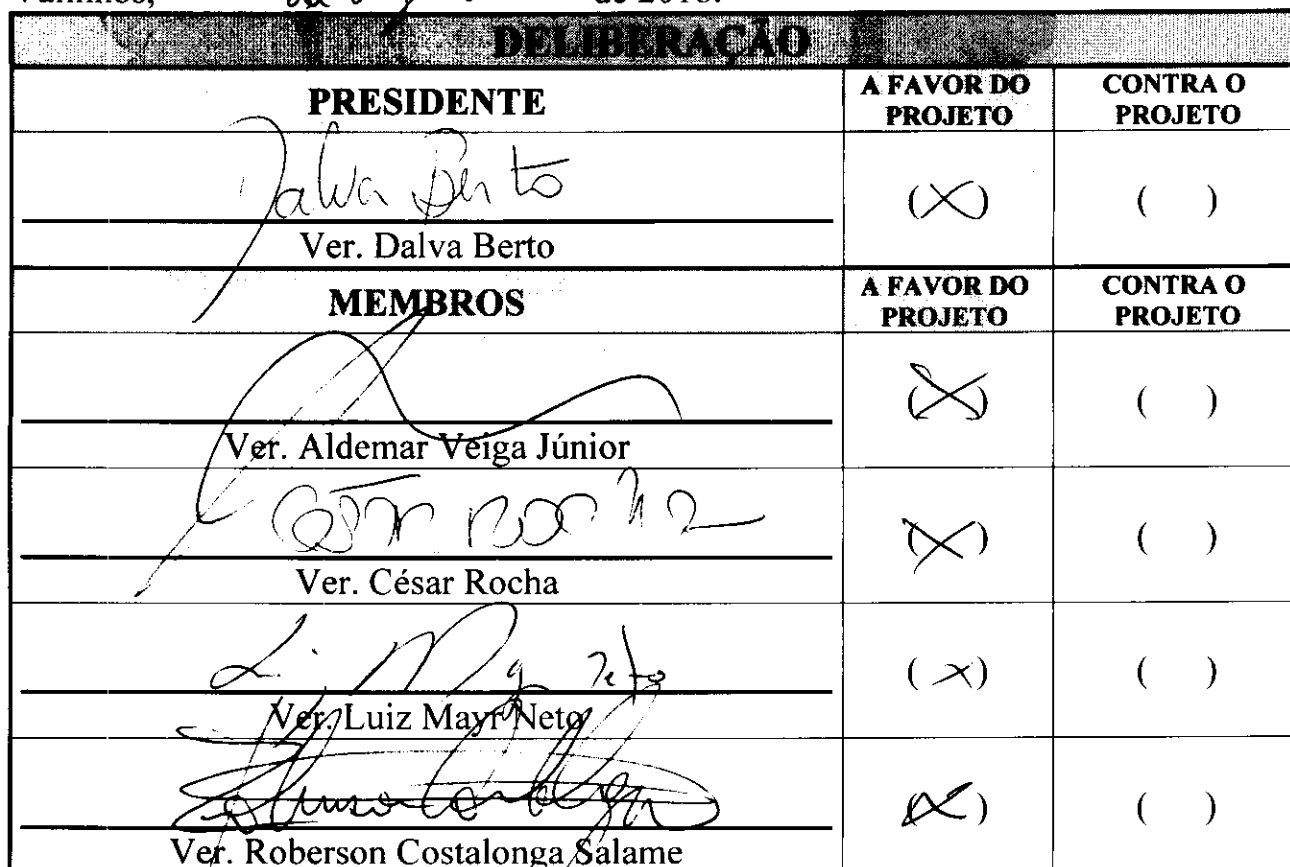 Valinhos, de 2018.
DELIBERAÇÃO
PRESIDENTE A FAVOR DO PROJETO CONTRA O PROJETO
Dalva Berto (X) ( )
Ver. Dalva Berto
MEMBROS A FAVOR DO PROJETO CONTRA O PROJETO
(X) ( )
Ver. Aldemar Veiga Júnior
César Rocha (X) ( )
Ver. César Rocha
(X) ( )
Ver. Luiz Mayr Neto
(X) ( )
Ver. Roberson Costalonga Salame